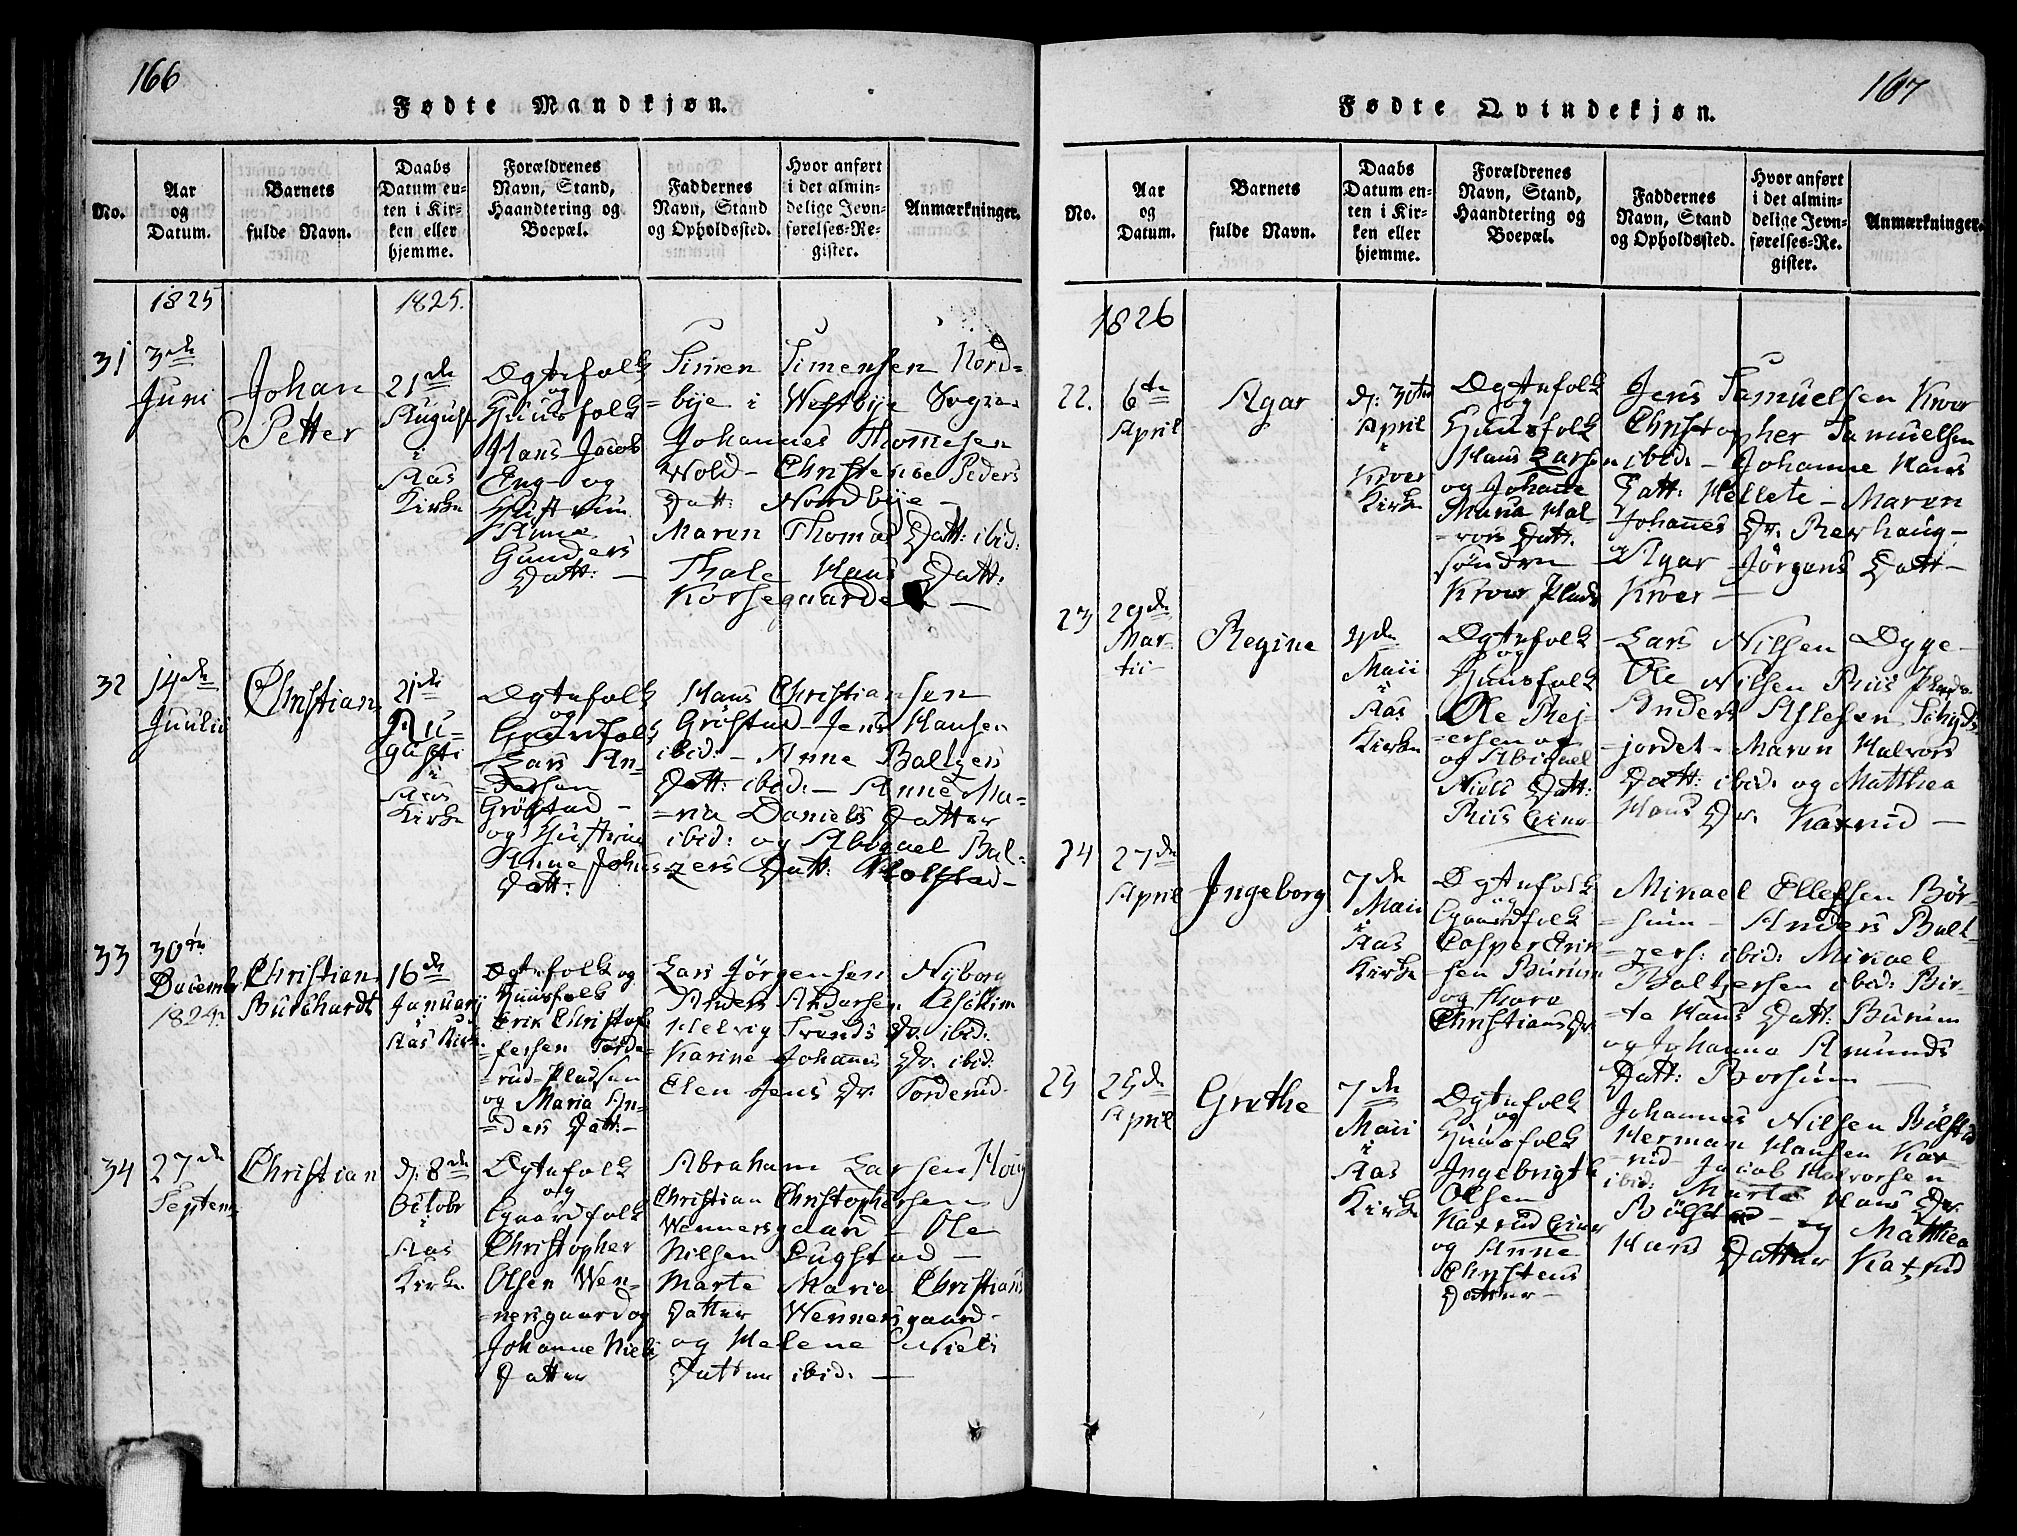 166
Fødte Mandkjøn.
No.
Aar
og
Datum.
Barnets
fulde Navn.
Daabs
Datum en-
ten i Kir-
ken eller
hjemme.
Forældrenes
Navn, Stand,
Haandtering og
Boepæl.
Faddernes
Navn, Stand
og Opholdssted.
Hvor anført
i det almin-
delige Jevn-
førelses-Re-
gister.
Anmærkninger.
1825
1825.
31
3de
Juni
Johan
Petter
21de
August
i
Aas
Kirke
Ægtefolk
og
Huusfolk
Hans Jacob
Eng og
Hustrue
Anne
Gunders
Datt: —
Simen Simensen Nord-
bye i Westbye Sogn
Johannes Thomesen
Wold – Christense Peders
Datt: Nordbye –
Maren Thomas Datt: ibid:
Thale Hans Datt:
Korsegaarden —
32
14de
Juulii
Christian
21de
Au-
gusti
i
Aas
Kirke
Ægtefolk
og
Gaardfolk
Lars An-
dersen
Grøstad –
og Hustrue
Anne Johns
Datt:
Hans Christiansen
Grøstad – Jens Hansen
ibid: – Anne Baltzers
Datt: ibid: – Anne Ma-
ria Daniels Datter
ibid: og Abigael Bal-
zers Datt: Holstad –
33
30te
Decembr
1824.
Christian
Burchhardt
16de
Januarij
i
Aas Kirke
Ægtefolk og
Huusfolk
Erik Christof-
fersen Torde-
rud-Pladsen
og Maria An-
ders Datt: –
Lars Jørgensen Nyborg
Anders Andersen
Helvig Trunds Dr. ibid:
Karine Johannes Dr. ibid.
Elen Jens Dr. Torderud –
34
27de
Septem
Christian
d: 8de
Octobr
i
Aas
Kirke
Ægtefolk
og
Gaardfolk
Christopher
Olsen Wen-
nersgaard og
Johanne Niels
Datter
Abraham Larsen Houg
Christian Christophersen
Wennersgaard – Ole
Nilsen Lugstad –
Marte Maria Christians
Datter Wennersgaard –
og Helene Niels
Datter ibid: —
167
Fødte Qvindekjøn.
No.
Aar
og
Datum.
Barnets
fulde Navn.
Daabs
Datum en-
ten i Kir-
ken eller
hjemme.
Forældrenes
Navn, Stand,
Haandtering og
Boepæl.
Faddernes
Navn, Stand
og Opholdssted.
Hvor anført
i det almin-
delige Jevn-
førelses-Re-
gister.
Anmærkninger.
1826
22.
6te
April
Agar
d: 30te
April
i
Kroer
Kirke
Ægtefolk
og
Huusfolk
Hans Larsen
og Johane
Maria Hal-
vors Datt.
søndre
Kroer Plads
Jens Samuelsen Kroer
Christopher Samuelsen
ibid: – Johanne Hans
Datt: Hellete – Maren
Johannes Dr. Revhaug –
og Agar Jørgens Datt –
Kroer —
23
29de
Mar-
tii –
Regine
4de
Maii
i
Aas
Kirke
Ægtefolk
og
Huusfolk
Ole Rej-
ersen og
og Abigael
Niels Datt:
Riis Eier
Lars Nilsen Dyge –
Ole Nilsen Riis Plads
Anders Aslesen
jordet – Maren Halvors
Datt: ibid: og Matthea
Hans Dr. Kaxrud —
24
27de
April
Ingeborg
7de
Maii
i
Aas
Kirke
Ægtefolk
og
Gaardfolk
Casper Erik-
sen Burum
og Kare
Christians Dr.
Mikael Ellefsen Bør-
sum – Anders Balt-
zers: ibid: Mikael
Baltzersen ibid: Bir-
te Hans Datt: Burum
og Johanne Amunds
Datt: Borsum —
25
25de
April
Grethe
7de
Maii
i
Aas
Kirke
Ægtefolk
og
Huusfolk
Ingebrigth
Olsen
Kaxrud Eier
og Anne
Christens
Datter –
Johannes Nilsen Bølstad
Herman Hansen Kax-
rud – Jacob Halvorsen
ibid: Marte Hans Dr.
Bølstad – og Mathea
Hans Datter Kaxrud